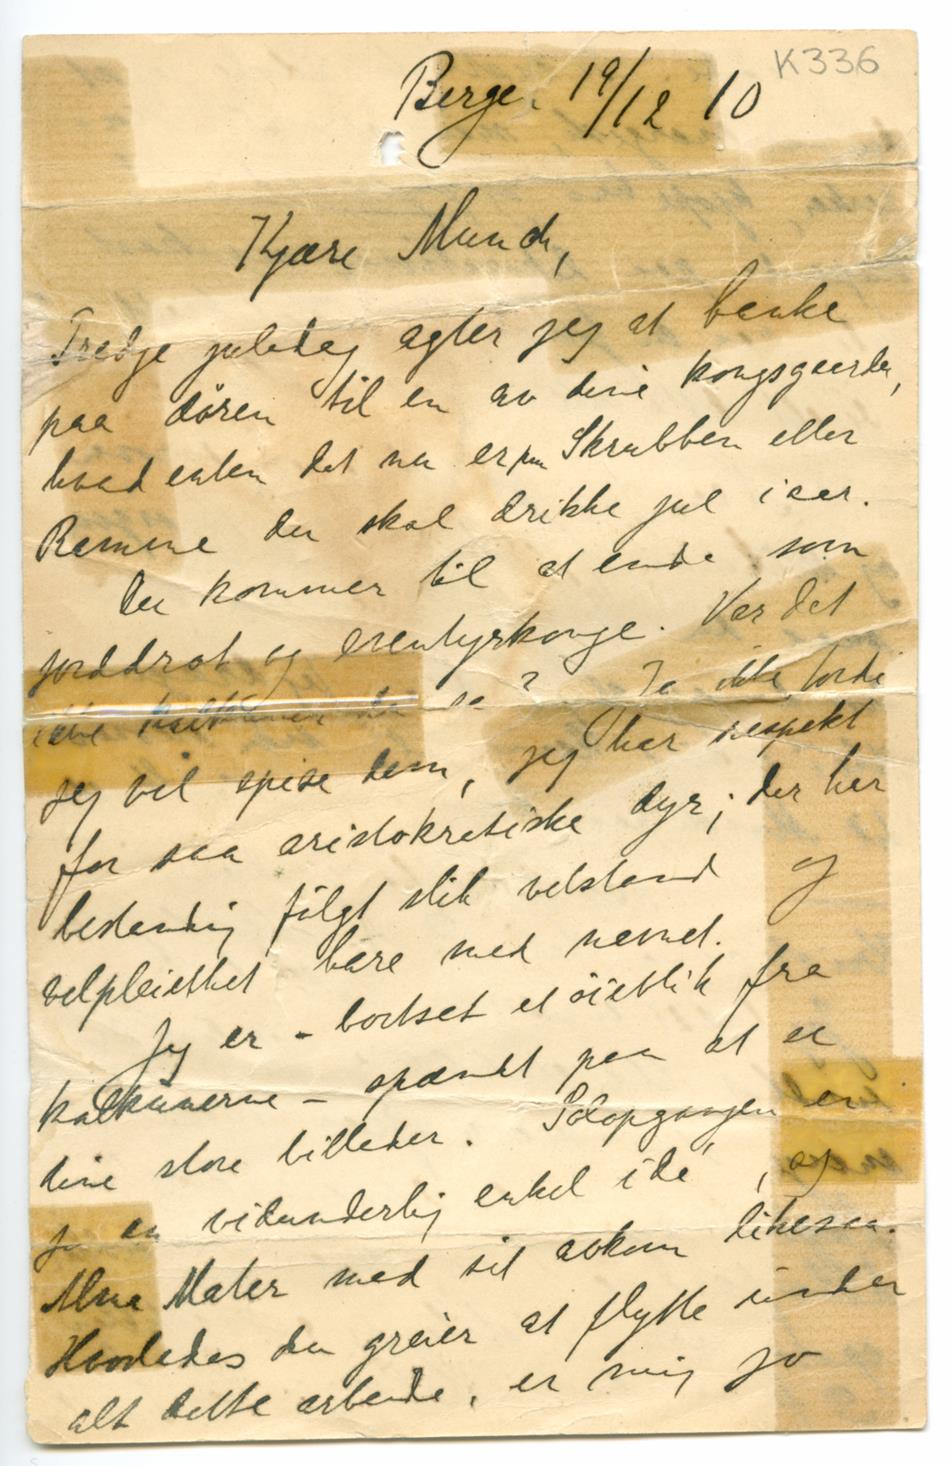 K336
Bergen 19/12 10
Kjære Munch,
Tredje juledag agter jeg at banke
paa døren til en av dine kongsgaarder,
hvad enten det nu er paa Skrubben eller
Ramme du skal drikke jul i aar.
Du kommer til at ende som
jorddrot og eventyrkonge. Var det
ikke kalkuner du sa? Ja ikke fordi
jeg vil spise dem, jeg har respekt
for saa aristokratiske dyr; der har
bestandig fulgt slik velstand og
velpleiethet bare med navnet.
Jeg er – bortset et øieblik fra
kalkunerne – spændt paa at se
dine store billeder. Solopgangen er
jo en vidunderlig enkel idé, og
Alma Mater med sit avkom likesaa.
Hvorledes du greier at flytte under
alt dette arbeide, er mig jo